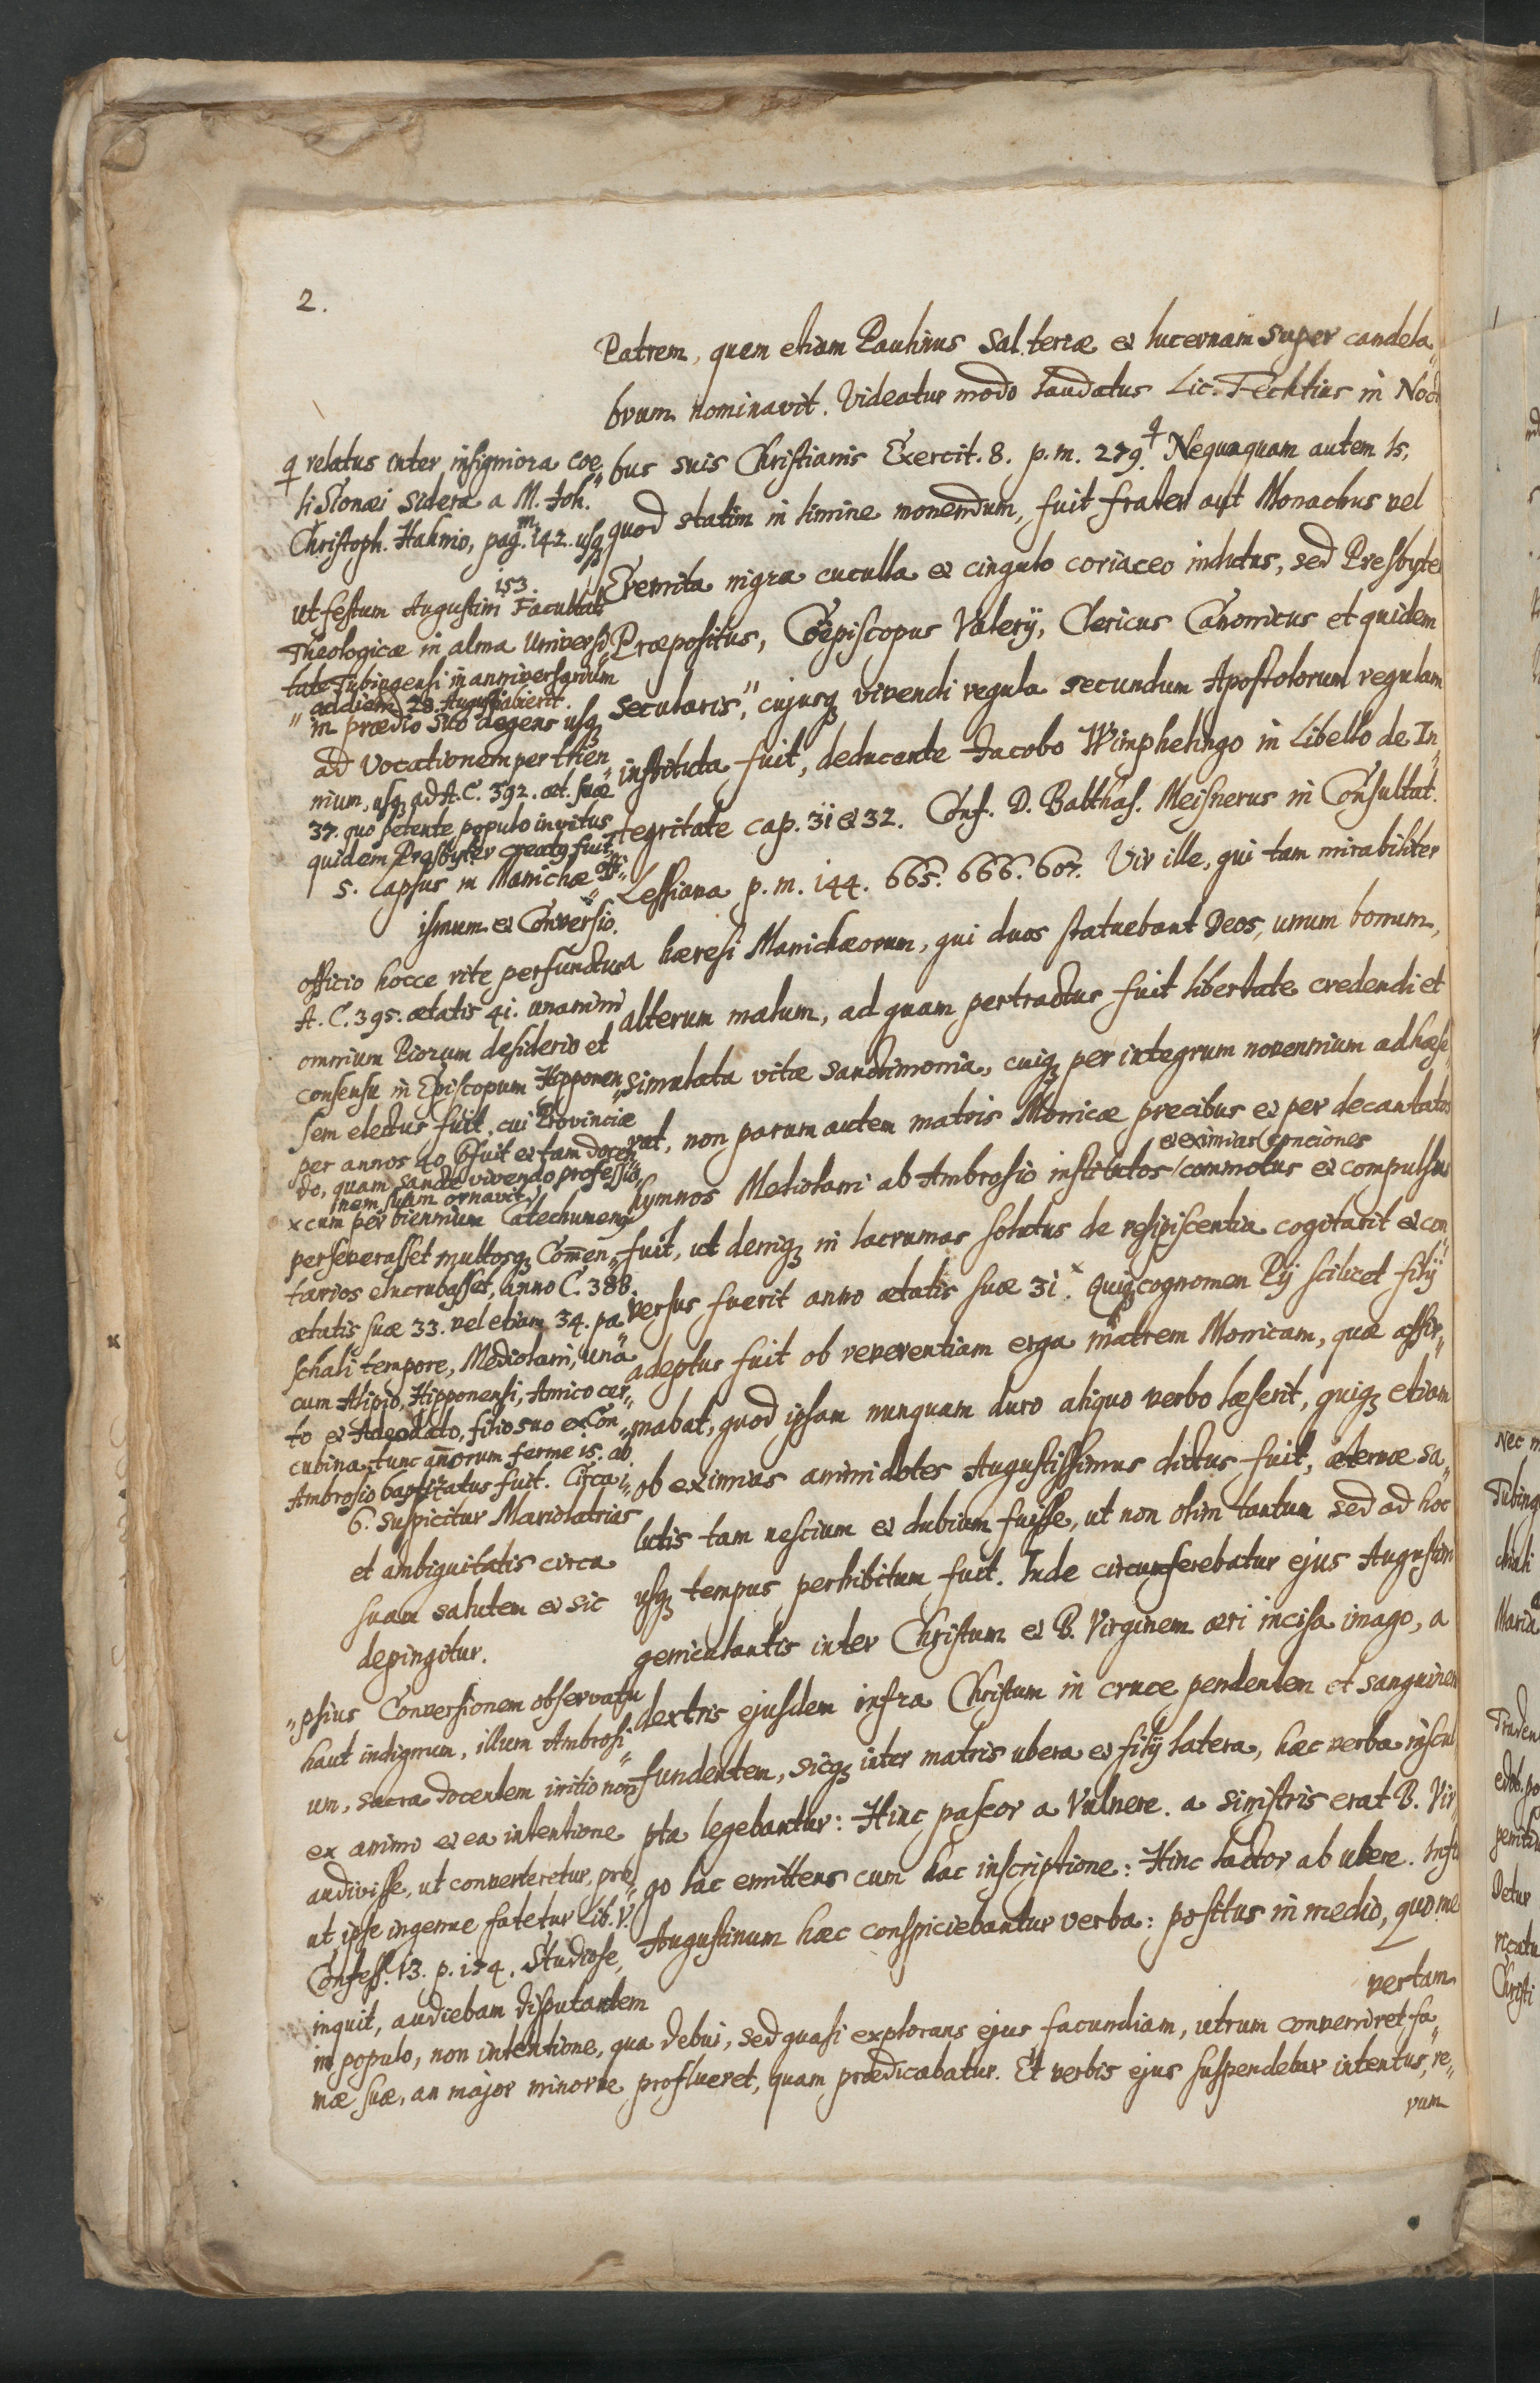 2.
Patrem, quem etiam Paulinus Sal terræ et lucernam super candela„
brum nominavit. Videatur modo laudatus Lic. Fechtius in Noct
bus suis Christianis Exercit. 8. p. m. 279. Nequaquam autem Is,
quod statim in limine monendum, fuit frater aut Monachus vel
Eremita nigra cuculla et cingulo coriaceo indutus, sed Presbyter
Præpositus, Coëpiscopus Valerij, Clericus Canonicus et quidem
secularis," cujusq vivendi regula secundum Apostolorum regulam
instituta fuit, deducente Jacobo Wimphelingo in Libello de In„
tegritate cap. 31 et 32. Conf. D. Balthas. Meisnerus in Consultat.
Lessiana p. m. 144. 665. 666. 607. Vir ille, qui tam mirabiliter
a hæresi Manichæorum, qui duos statuebant Deos, unum bonum,
alterum malum, ad quam pertractus fuit libertate credendi et
simulata vitæ sanctimonia, cuiq per integrum novennium adhæse
rat, non parum autem matris Monicæ precibus et per decantatos
et eximias conciones
hymnos Mediolani ab Ambrosio institutos / commotus et compulsus
fuit, ut deniq in lacrumas solutus de resipiscentia cogitarit et con„
versus fuerit anno ætatis suæ 31. x Quiq cognomen Pij scilicet filij
adeptus fuit ob reverentiam erga matrem Monicam, quæ affir„
mabat, quod ipsam nunquam duro aliquo verbo læserit, quiq etiam
ob eximias animi dotes Augustissimus dictus fuit, æternæ sa„
lutis tam nescium et dubium fuisse, ut non olim tantum sed ad hoc
usq tempus perhibitum fuit. Inde circumferebatur ejus Augustini
geniculantis inter Christum et B. Virginem æri incisa imago, a
dextris ejusdem infra Christum in cruce pendentem et sanguinem
fundentem, sicq inter matris ubera et filij latera, hæc verba inscri
pta legebantur: Hinc pascor a Vulnere. a sinistris erat B. Vir„
go lac emittens cum hac inscriptione: Hinc lactor ab ubere. Infra
Augustinum hæc conspiciebantur verba: positus in medio, quo me
vertam
relatus inter insigniora coe„
li Sionæi sidera a M. Joh.
Christoph. Hahnio, pag. m. 142. usq
153.
ut festum Augustini Facultati
Theologicæ in alma Universi„
tate Tübingensi in anniversarium
ad diem 28. Augusti abierit.
„ in prædio suo degens usq
ad Vocationem per trien„
nium, usq ad A. C. 392. æt. suæ
37. quo petente populo invitus
quidem Presbyter creatq fuit,
5. Lapsus in Manichæ„
ismum et Conversio.
officio hocce rite perfunctus
A. C. 395. ætatis 41. unanimi
omnium Piorum desiderio et
consensu in Episcopum Hipponen„
sem electus fuit, cui Provinciæ
per annos 40 præfuit et tam docen„
do, quam sancte vivendo professio„
nem suam ornavit.
x cum per biennium Catechumenq
perseverasset multosq Comen„
tarios elucubasset, anno C. 388.
ætatis suæ 33. vel etiam 34. pa„
schali tempore, Mediolani, una
cum Alipio, Hipponensi, Amico cer„
to et Adeodato, filio suo ex Con„
cubina, tunc annorum ferme 15. ab
Ambrosio baptizatus fuit. Circa i„
6. suspicitur Mariolatrias
et ambiguitatis circa
suam salutem et sic
depingitur.
„psius Conversionem observatu
haut indignum, illum Ambrosi„
um, sacra docentem initio non
ex animo et ea intentione
audivisse, ut converteretur, pro„
ut ipse ingenue fatetur Lib. V.
Confess. 13. p. 174. Studiose,
inquit, audiebam disputantem
in populo, non intentione, qua debui, sed quasi explorans ejus facundiam, utrum conveniret fa„
mæ suæ, an major minorve proflueret, quam prædicabatur. Et verbis ejus suspendebar intentus, re„
rum